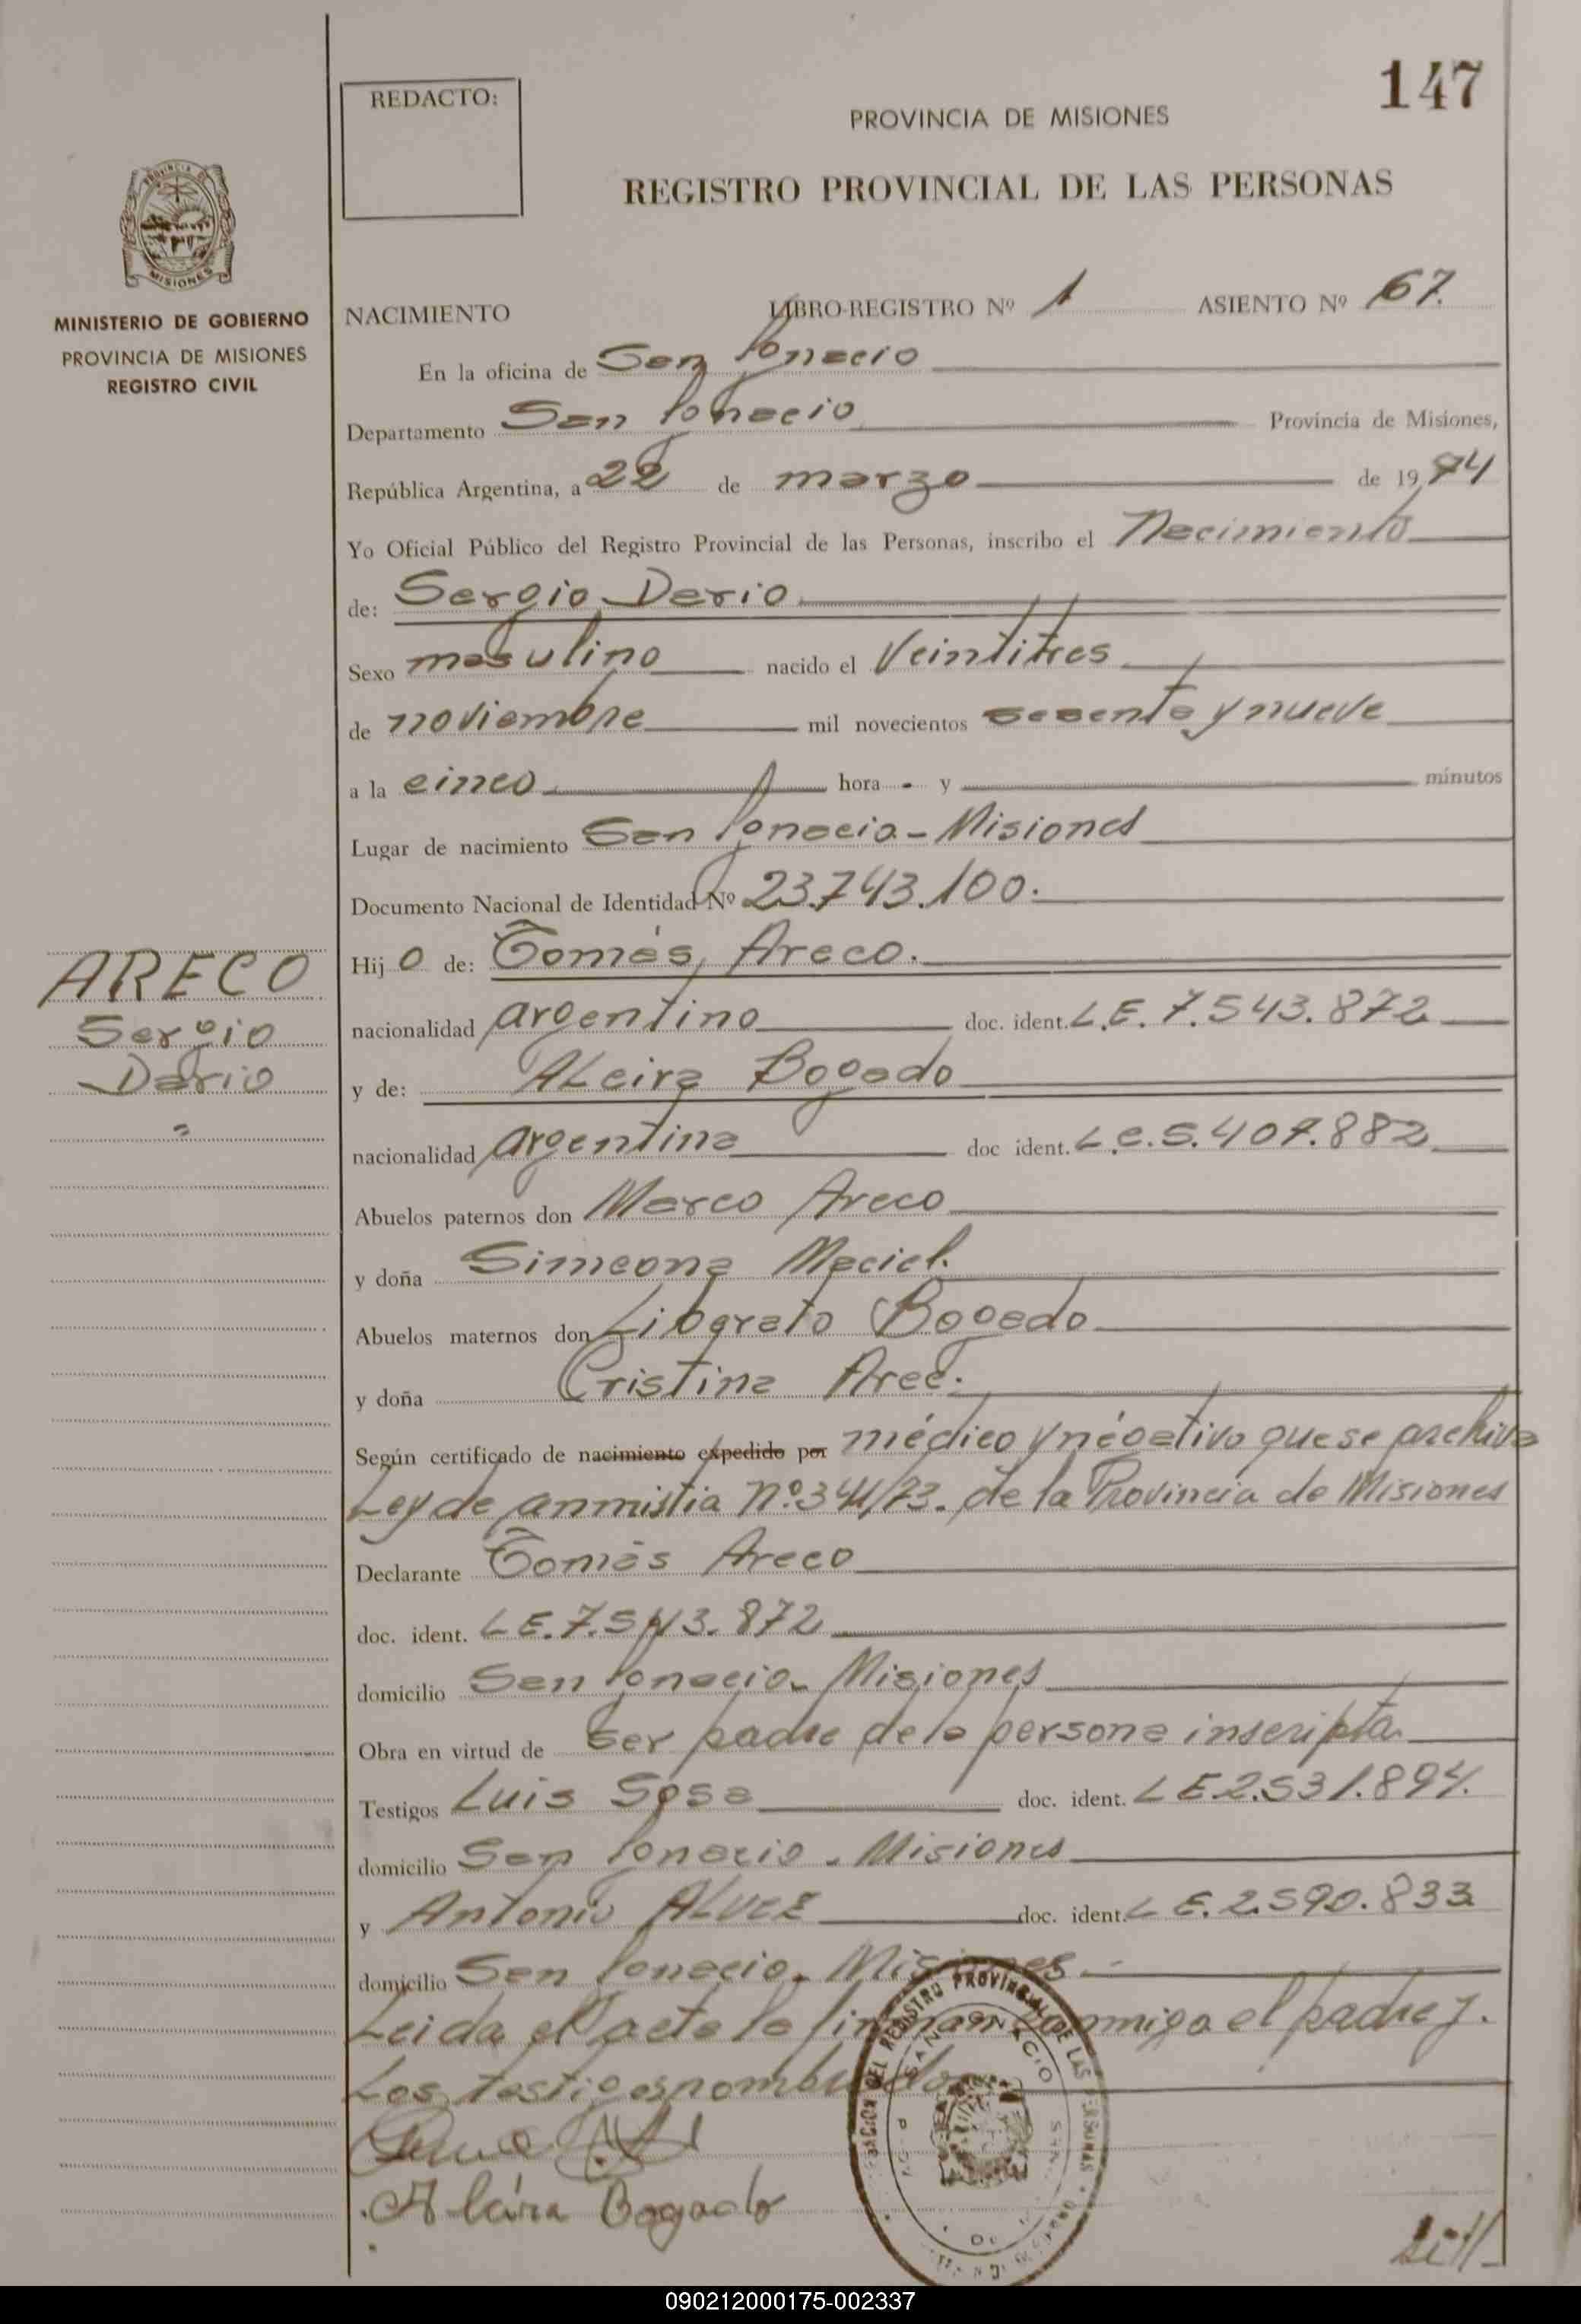 147
REDACTO:
PROVINCIA DE MISIONES
REGISTRO PROVINCIAL DE LAS PERSONAS
MISIONES
MINISTERIO DE GOBIERNO
PROVINCIA DE MISIONES
REGISTRO CIVIL
NACIMIENTO LIBRO-REGISTRO Nº 1 ASIENTO Nº 67.
En la oficina de San Ignacio
Departamento San Ignacio Provincia de Misiones,
República Argentina, a 22 de marzo de 1974
Yo Oficial Público del Registro Provincial de las Personas, inscribo el Nacimiento
de: Sergio Dario
Sexo masulino nacido el Veintitres
de noviembre mil novecientos sesenta y nueve
a la cinco hora - y minutos
Lugar de nacimiento San Ignacio - Misiones
Documento Nacional de Identidad Nº 23.743.100.
ARECO
Sergio
Dario
Hijo de: Tomás Areco.
nacionalidad argentino doc. ident. L.E. 7.543.872
y de: Alcira Bogado
nacionalidad argentina doc ident. L.C. 5.407.882
Abuelos paternos don Marco Areco
y doña Simeona Maciel.
Abuelos maternos don Liberato Bogado
y doña Cristina
Según certificado de nacimiento expedido por médico y négativo que se archiva
Ley de anmistia nº 341/73. de la Provincia de Misiones
Declarante Tomás Areco
doc. ident. L E. 7.543.872
domicilio San Ignacio - Misiones
Obra en virtud de ser padre de la persona inscripta.
Testigos Luis Sosa doc. ident. L E 2.531.894.
domicilio San Ignacio - Misiones
y Antonio Alvez doc. ident. L E. 2.590.833
domicilio San Ignacio - Misiones -
Leida el acta la firman conmigo el padre y.
Los testigos nombrados
Alcira Bogado
REGISTRO PROVINCIAL DE LAS PERSONAS
SAN IGNACIO
090212000175-002337